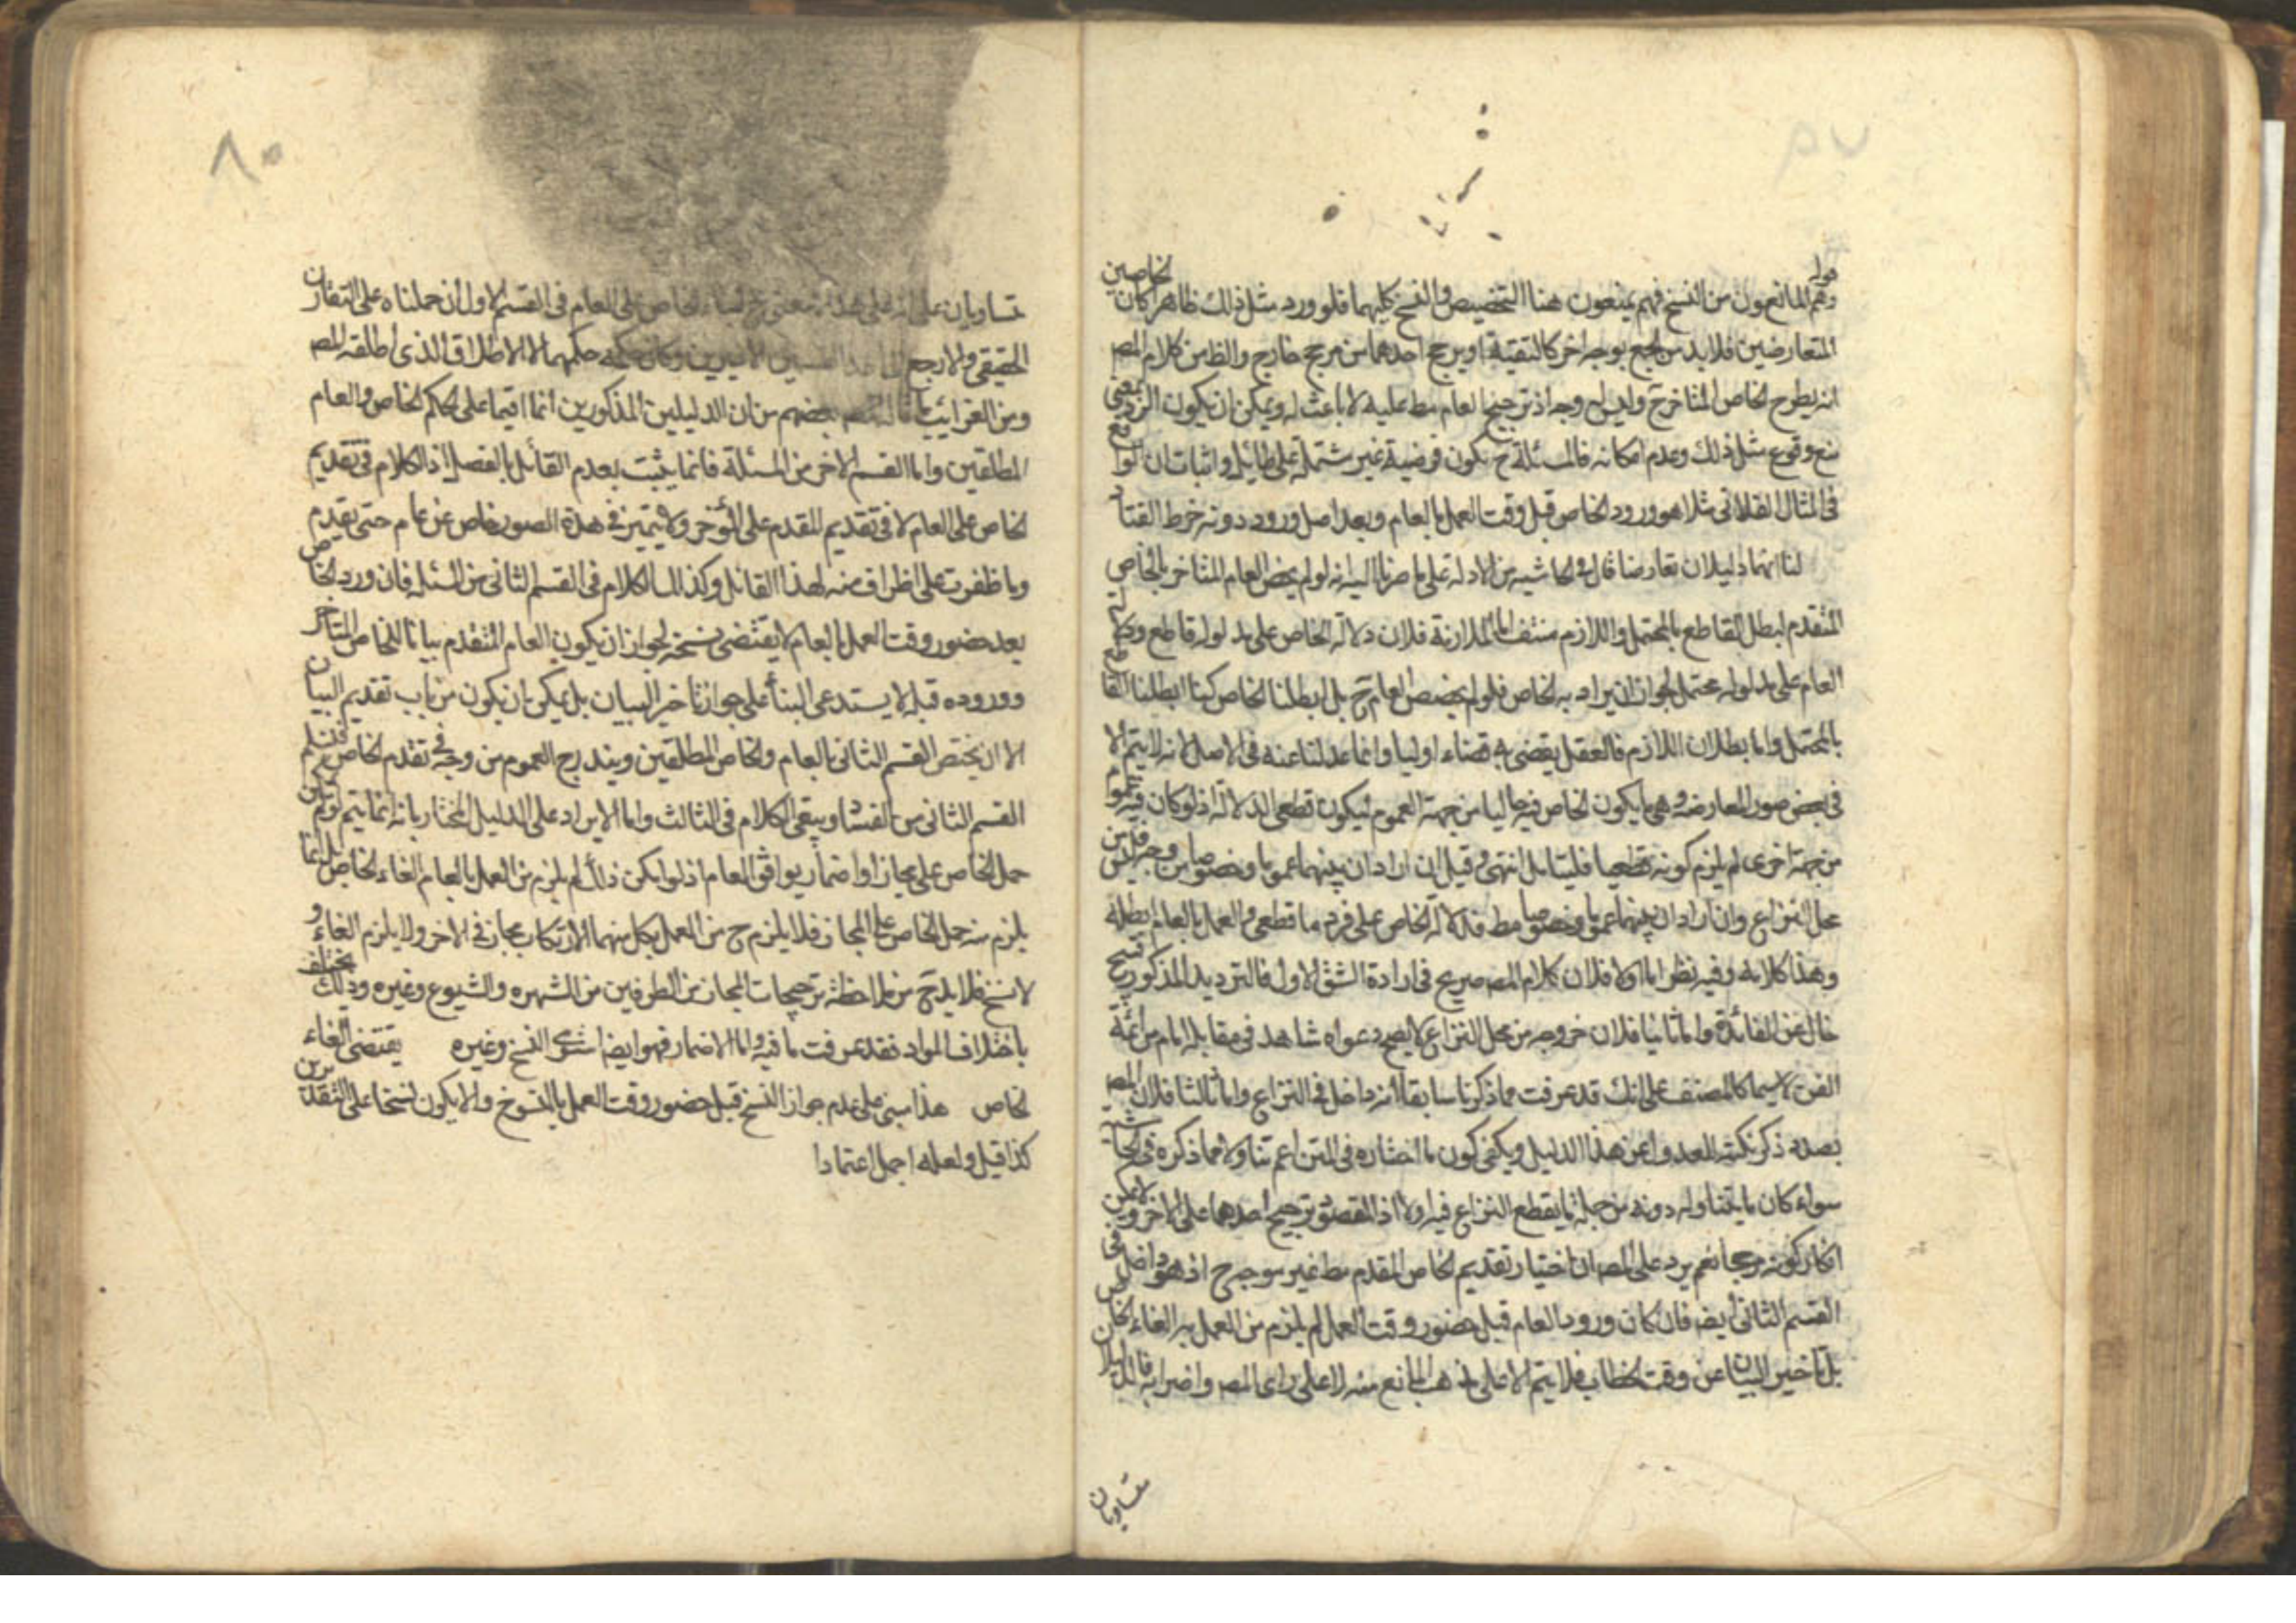 قوله وهم المانعون من النسخ فهم يمنعون هنا التخصيص والنسخ كليهما فلو ورد مثل ذلك ظاهرا كان الخاصين
المتعارضين فلا بد من الجمع بوجه اخر كالتقية او يرجح احدهما من مرجح خارج والظ من كلام المص
انه يطرح الخاص المتاخر ح وليس له وجه اذ ترجيح العام مط عليه لا باعث له ويمكن ان يكون الغرض
منع وقوع مثل ذلك وعدم امكانه فالمسئلة ح يكون فرضية غير مشتملة على طائل واثبات ان الواقع
فى المثال الفلانى مثلا هو ورود الخاص قبل وقت العمل بالعام وبعد اصل وروده دونه خرط القتاد
لنا انهما دليلان تعارضا قال فى الحاشيه من الادلة على ما صرنا اليه انه لو لم يخص العام المتاخر بالخاص
المتقدم لبطل القاطع بالمحتمل واللازم منتف اما الملازمة فلان دلالة الخاص على مدلوله قاطع ودلالة
العام على مدلوله محتمل لجواز ان يراد به الخاص فلو لم يخصص العام ح بل ابطلنا الخاص كنا ابطلنا القاطع
بالمحتمل واما بطلان اللازم فالعقل يقضى به قضاء اوليا وانما عدلنا عنه فى الاصل لانه لا يتم الا
فى بعض صور المعارضه وهى ما يكون الخاص فيه خاليا من جهة العموم ليكون قطعى الدلالة اذ لو كان فيه عموم
من جهة اخرى لم يلزم كونه قطعيا فليتامل انتهى وقيل ان اراد ان بينهما عموما وخصوصا من وجه فليس من
محل النزاع وان اراد ان بينهما عموما وخصوصا مط فدلالة الخاص على فرد ما قطعى والعمل بالعام ابطله
وهذا كلامه وفيه نظر اما اولا فلان كلام المص صريح فى ارادة الشق الاول فالترديد المذكور قبيح
خال عن الفائدة واما ثانيا فلان خروجه من محل النزاع لا يصح دعواه شاهد فى مقابله امام من ائمة
الفن لا سيما كالمصنف على انك قد عرفت مما ذكرنا سابقا انه داخل فى النزاع واما ثالثا فلان المص
بصدد ذكر نكتة العدول عن هذا الدليل ويكفى كون ما اختاره فى المتن اعم تناولا مما ذكره فى الحاشية
سواء كان ما يتناوله دونه من جملة ما يقطع النزاع فيه اولا اذ القصد ترجيح احدهما على الاخر ولا يمكن
انكار كونه مرجحا نعم يرد على المص ان اختيار تقديم الخاص المقدم مط غير موجه ح اذ هو داخل فى
القسم الثانى ايض فان كان ورود العام قبل حضور وقت العمل لم يلزم من العمل به الغاء الخاص
بل تاخير البيان عن وقت الخطاب فلا يتم الا على مذهب المانع منه لا على راى المص واضرابه فالدليلان
متساويان
٨٠
متساويان على انه على هذا معنى بناء الخاص على العام فى القسم الاول ان حملناه على التقارن
الحقيقى والا رجع الى احد القسمين الاخيرين وكان حكمه حكمهما الا الاطلاق الذى اطلقه المص
ومن الغرائب بعضهم من ان الدليلين المذكورين انما اقيما على حكم الخاص والعام
المطلقين واما القسم الاخر من المسئلة فانما يثبت بعدم القائل بالفصل اذ الكلام فى تقديم
الخاص على العام لا فى تقديم المقدم على المؤخر ولا يتميز فى هذه الصور خاص عن عام حتى يقدم
وما ظفرت على اطراف منه لهذا القائل وكذا الكلام فى القسم الثانى من المسئله فان ورود الخاص
بعد حضور وقت العمل بالعام لا يقتضى نسخه لجواز ان يكون العام المتقدم بيانا للخاص المتاخر
ووروده قبله لا يستدعى البناء على جواز تاخير البيان بل يمكن ان يكون من باب تقديم البيان
الا ان يختص القسم الثانى بالعام والخاص المطلقين ويندرج العموم من وجه تقدم الخاص
القسم الثانى من الفساد ويبقى الكلام فى الثالث واما الايراد على الدليل المختار بانه انما يتم لو لم يكن
حمل الخاص على مجاز او اضمار يوافق العام اذ لو امكن ذلك لم يلزم من العمل بالعام الغاء الخاص بل انما
يلزم منه حمل الخاص على المجاز فلا يلزم ح من العمل بكل منهما الا ارتكاب مجاز فى الاخر ولا يلزم الغاء و
لا نسخ فلا بد ح من ملاحظة ترجيحات المجاز من الطرفين من الشهره والشيوع وغيره وذلك يختلف
باختلاف المواد فقد عرفت ما فيه واما الاضمار فهو ايضا النسخ وغيره يقتضى الغاء
الخاص هذا مبنى على عدم جواز النسخ قبل حضور وقت العمل بالمنسوخ والا يكون نسخا على التقديرين
كذا قيل ولعله اجمل اعتمادا